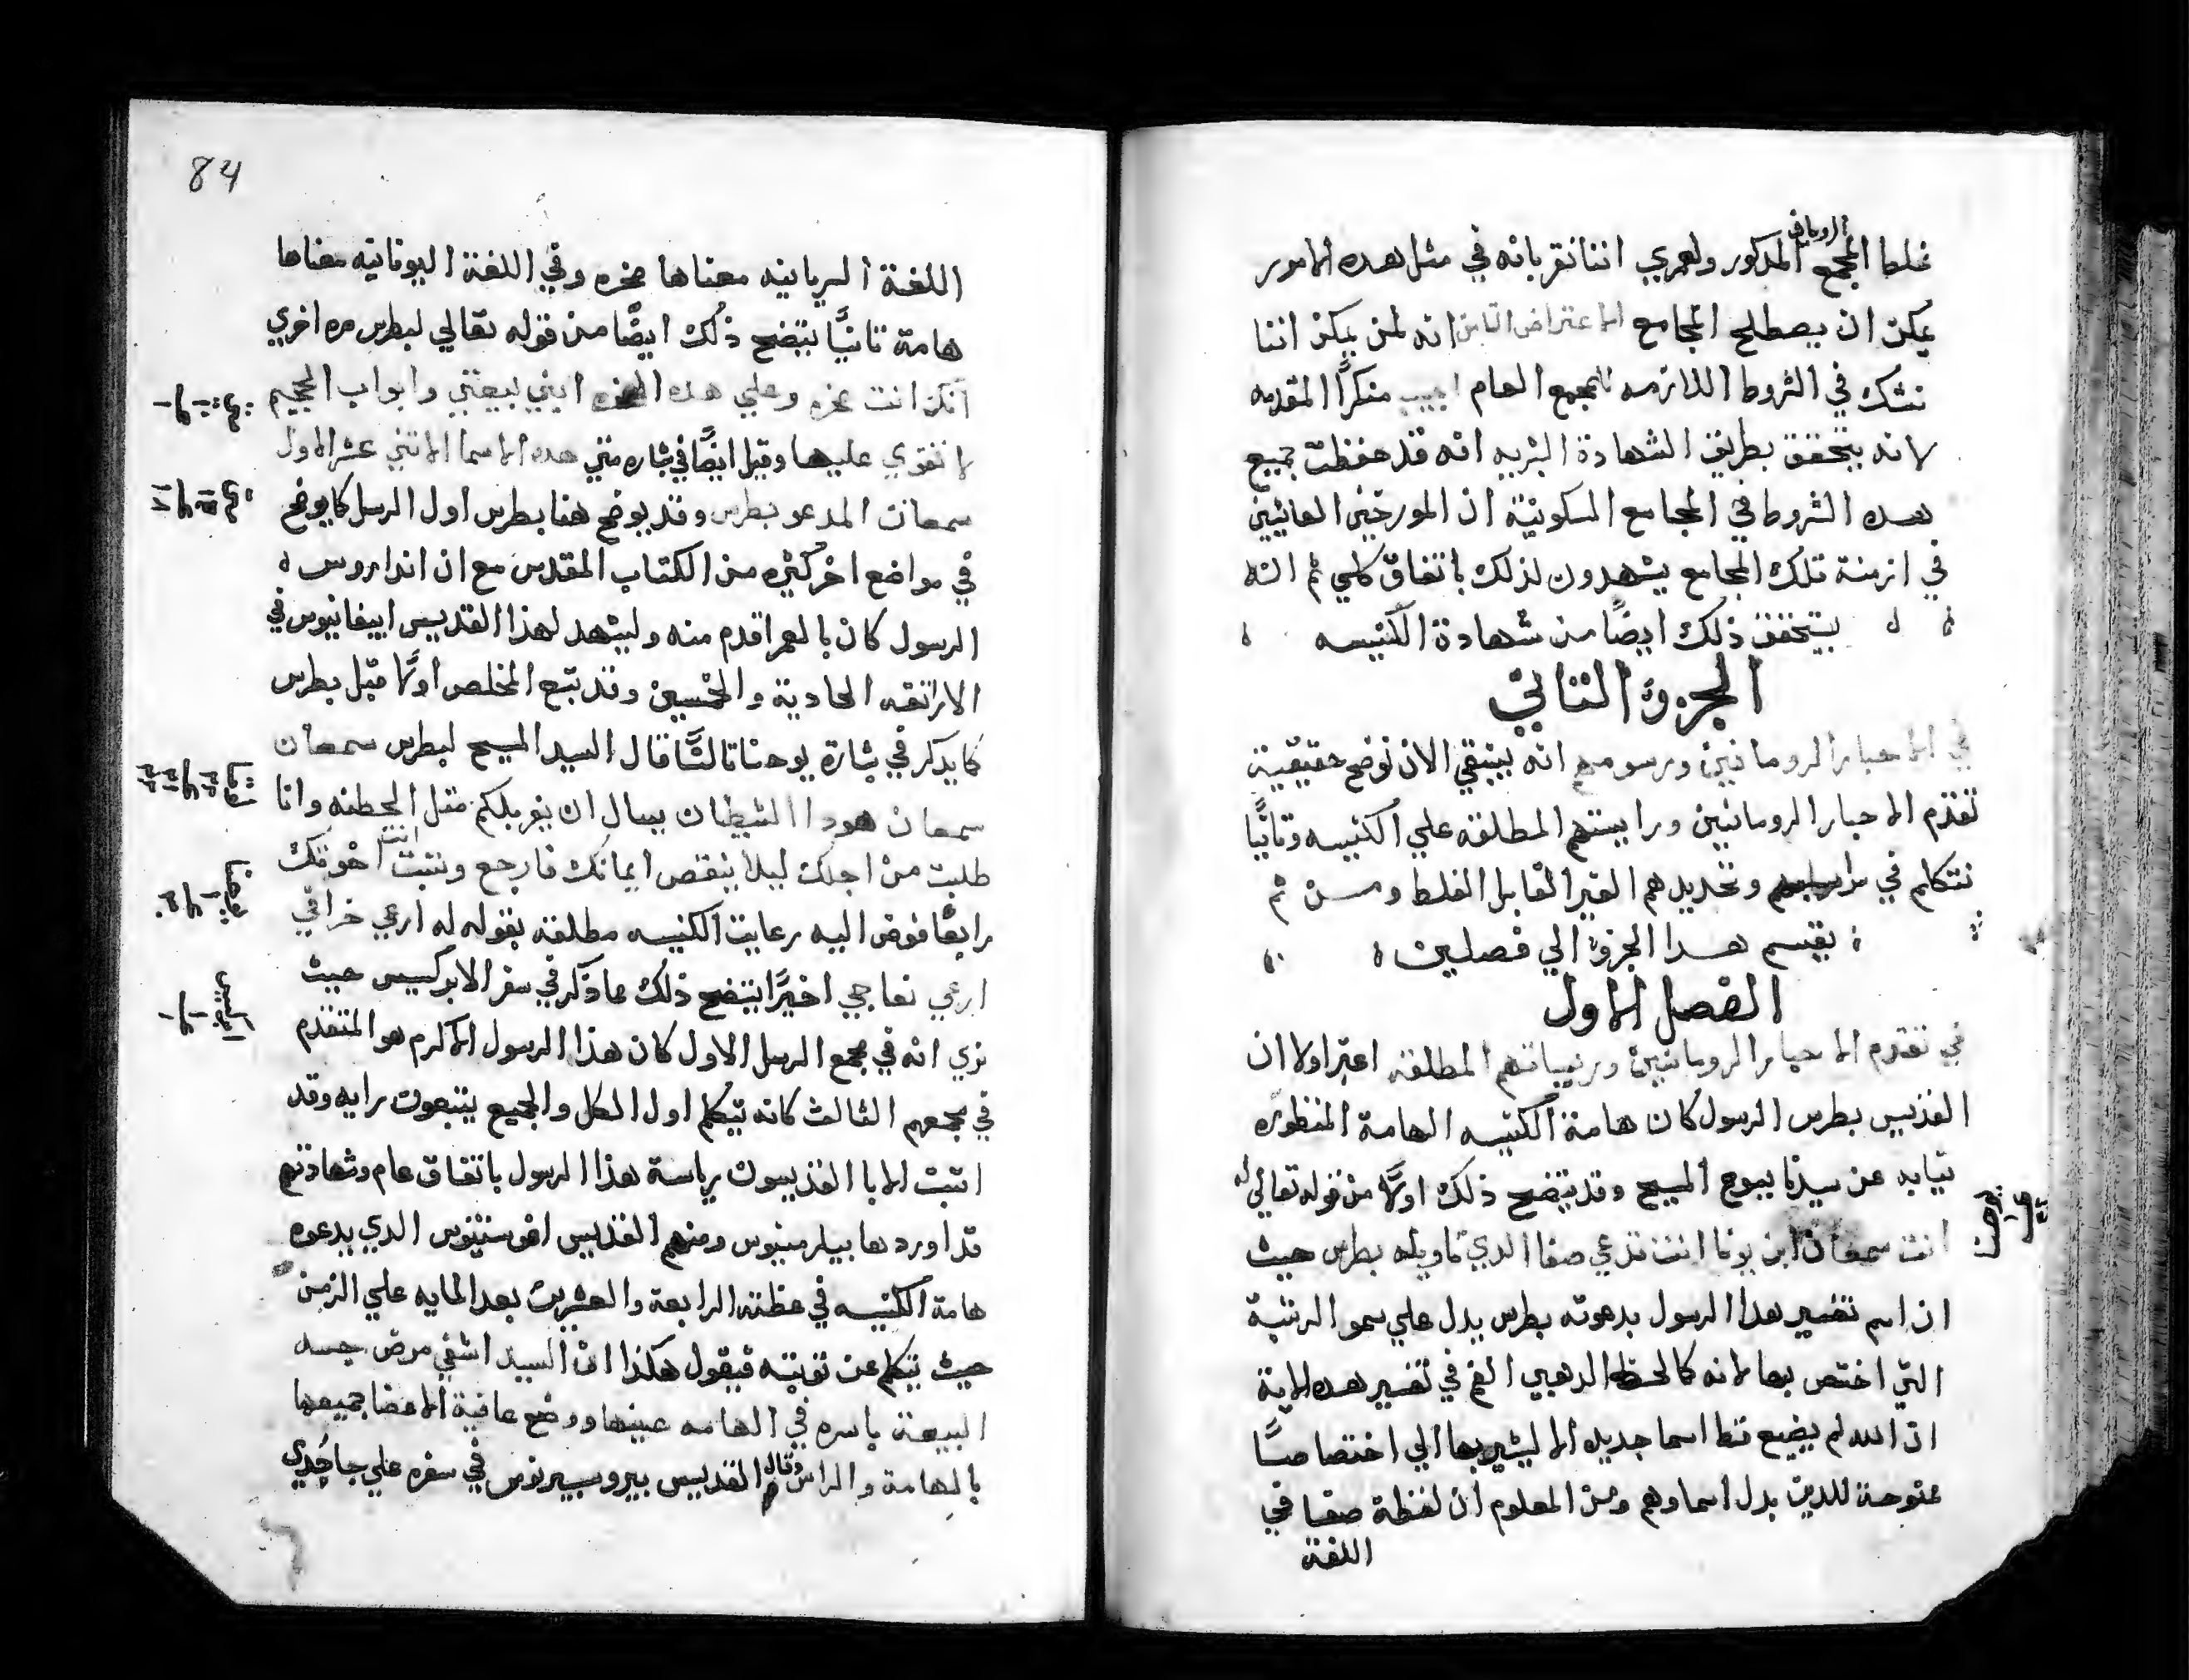 الروماني
غلط المجمع المدكور ولعمري اننا نقر بانه في مثل هده الامور
يمكن ان يصطلح المجامع الاعتراض الثامن انه لمن يمكن اننا
نشك في الشروط اللازمه للمجمع العام اجيب منكرًا المقدمه
لانه يتحقق بطريق الشهادة البشريه انه قد حفظت جميع
هده الشروط في المجامع المسكونية ان المورخين العائيين
في ازمنة تلك المجامع يشهدون لذلك باتفاق كلي ثم انه
يتحقق ذلك ايضًا من شهادة الكنيسه
الجزؤ التاني
في الاحبار الرومانيين ورسومهم انه ينبغي الان نوضح حقيقية
تقدم الاحبار الرومانيين ورايستهم المطلقه علي الكنيسه وتانيًا
نتكلم في وتحديدهم الغير القابل الغلط ومن ثم
يقسم هدا الجزؤ الي فصلين
الفصل الاول
في تقدم الاحبار الرومانيين ورئيساتهم المطلقه اعتبر اولا ان
القديس بطرس الرسول كان هامة الكنيسه الهامة المنظوره
نيابه عن سيدنا يسوع المسيح وقد يتضح ذلك اولًا من قوله تعالي له
يوحنا
انت سمعان ابن يونا انت تدعي صفا الدي تاويله بطرس حيث
ان اسم تفسير هدا الرسول بدعوته بطرس يدل علي سمو الرتبة
التي اختص بها لانه كالحظ الدهبي الفم في تفسير هده الاية
ان الله لم يضيع قط اسما جديده الا ليشير بها الي اختصاصًا
ممنوحة للدين بدل اسماوهم ومن المعلوم ان لفظة صفا في
اللغة
84
اللغة السريانيه معناها صخره وفي اللغة اليونانيه معناها
هامة تانيًا يتضح ذلك ايضًا من قوله تعالي لبطرس مره اخري
انك انت صخره وعلي هده الصخره ابني بيعتي وابواب الجحيم
لا تقوي عليها وقيل ايضًا في بشاره متي هده الاسما الاتني عشر الاول
سمعان المدعو بطرس وقد يوضح هنا بطرس اول الرسل كما يوضح
في مواضع اخر كثيره من الكتاب المقدس مع ان اندراوس
الرسول كان بالعمر اقدم منه وليشهد لهذا القديس ابيفانيوس في
الاراتقه الحادية والخمسين وقد تبع المخلص اولًا قبل بطرس
كما يدكر في بشارة يوحنا تالتًا قال السيد المسيح لبطرس سمعان
لوقا
سمعان هودا الشيطان يسال ان يغربلكم متل الحطنه وانا
طلبت من اجلك ليلا ينقص ايمانك فارجع وتبت انت اخوتك
يوحنا
رابعًا فوض اليه رعايت الكنيسه مطلقه بقوله له ارعي خرافي
ارعي نعاجي اخيرًا يتضح ذلك مما ذكر في سفر الابركسيس حيث
ابركسيس
نري انه في مجمع الرسل الاول كان هذا الرسول الاكرم هو المتقدم
في مجمعهم الثالث كانه تيكلم اول الكل والجميع يتبعون رايه وقد
اتبت الابا القديسون رياسة هذا الرسول باتفاق عام وشهادتهم
قد اوردها بيلرمينوس ومنهم القديس اغوستينوس الدي يدعوه
هامة الكنيسه في عظته الرابعة والعشرين بعد المايه علي الزمن
حيث يتكلم عن توبته فيقول هكذا ان السيد اشفي مرض جسه
البيعة باسره في الهامه عينها ووضع عافية الاعضا جميعها
بالهامة والراس وقال القديس ييروسيرنوس في سفره علي